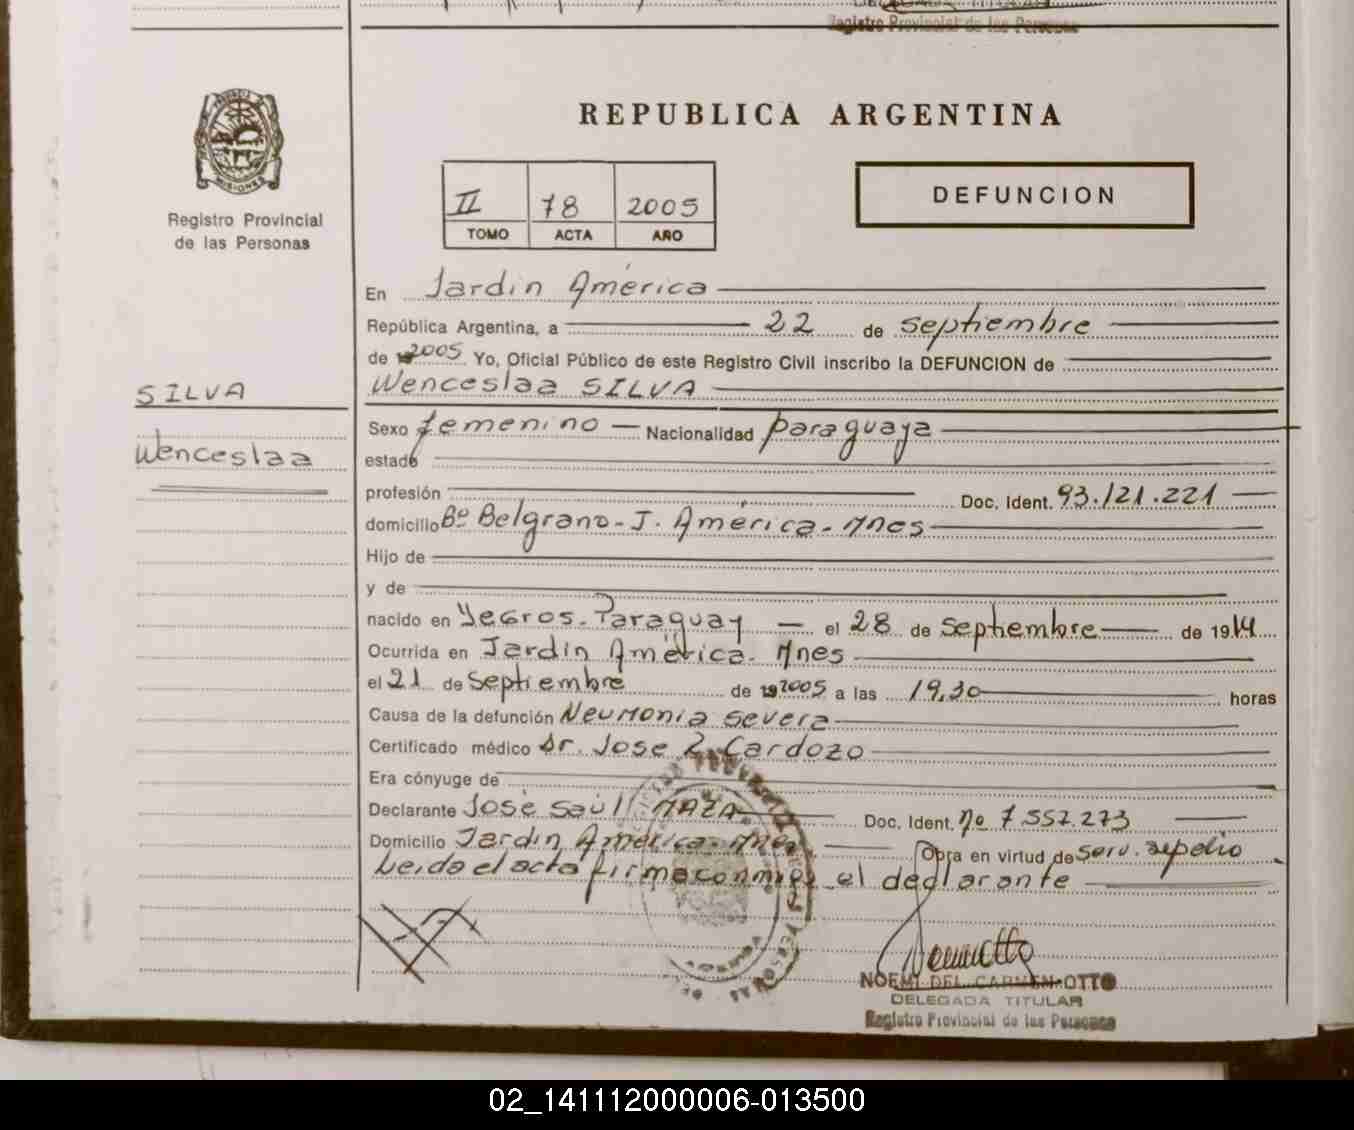 DELEGADA TITULAR
Registro Provincial de las Personas
PROVINCIA DE
MISIONES
REPUBLICA ARGENTINA
II 78 2005
TOMO ACTA AÑO
DEFUNCION
Registro Provincial
de las Personas
En Jardin América
República Argentina, a 22 de septiembre
de 2005 Yo, Oficial Público de este Registro Civil inscribo la DEFUNCION de
SILVA
Wenceslaa SILVA
Sexo femenino — Nacionalidad paraguaya
Wenceslaa
estado
profesión Doc. Ident. 93.121.221
domicilio Bº Belgrano - J. América - Mnes
Hijo de
y de
nacido en Yegros - Paraguay — el 28 de septiembre de 1914
Ocurrida en Jardin América - Mnes
el 21 de septiembre de 2005 a las 19,30 horas
Causa de la defunción Neumonia severa
Certificado médico Dr. Jose Cardozo
Era cónyuge de
Declarante José Saúl MAZA Doc. Ident. nº 7 557.273
Domicilio Jardin América - Mnes Obra en virtud de serv. sepelio
Leida el acta firma conmigo el declarante
NOEMI DEL CARMEN OTTO
DELEGADA TITULAR
Registro Provincial de las Personas
02_141112000006-013500